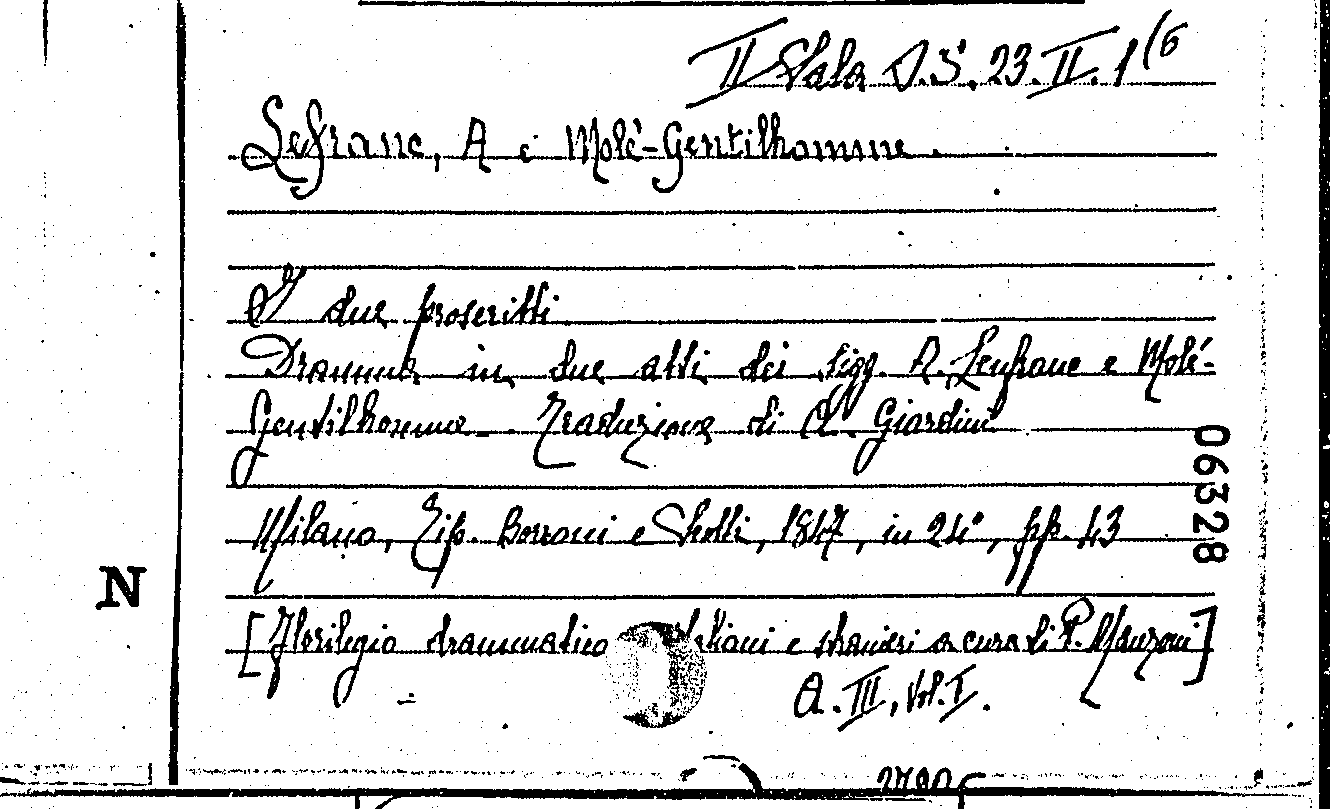 II Sala D.S. 23. II. 1/6
Lefranc, A e Molé-Gentilhomme.
I due proscritti
Dramma in due atti dei sigg. A. Lenfranc e Molé-
Gentilhomme. Traduzione di A. Giardini
06328
Milano, Tip. Borroni e Scotti, 1847, in 24°, pp. 43
N
[Florilegio drammatico e stranieri a cura di P. Manzoni]
A. III, Vol. I.